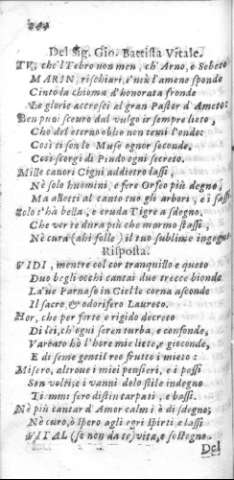 244
Del Sig. Gio. Battista Vitale.
TU, che'l Tebro non men, ch'Arno, e Sebeto
MARIN, rischiari, e più l'amene sponde
Cinto la chioma d'honorata fronde
Le glorie accresci al gran Pastor d'Ameto:
Ben puoi scevro dal vulgo ir sempre lieto,
Che del eterno oblio non temi l'onde:
Così ti son le Muse ognor seconde,
Così scorgi di Pindo ogni secreto.
Mille canori Cigni addietro lassi,
Nè solo huomini, e fere Orfeo più degno,
Ma alletti al canto tuo gli arbori, e i sassi
Solo t'hà bella, e cruda Tigre a sdegno,
Che ver te dura più che marmo stassi,
Nè cura (ahi folle) il tuo sublime ingegno
Risposta.
VIDI, mentre col cor tranquillo e queto
Duo begli occhi cantai due trecce bionde
La've Parnaso in Cielle corna asconde
Il sacro, & odorifero Laureto.
Hor, che per forte e rigido decreto
Di lei, ch'ogni seren turba, e confonde,
Turbato hò l'hore mie liete, e gioconde,
E di seme gentil reo frutto i mieto:
Misero, altrove i miei pensieri, e i passi
Son volti; e i vanni delo stile indegno
Ti mmi sero distin tarpati, e bassi.
Nè più cantar d'Amor calmi à di sdegno;
Nè curo, ò spero agli egri spirti e lassi
VITAL (se non da te) vita, e sostegno.
Del